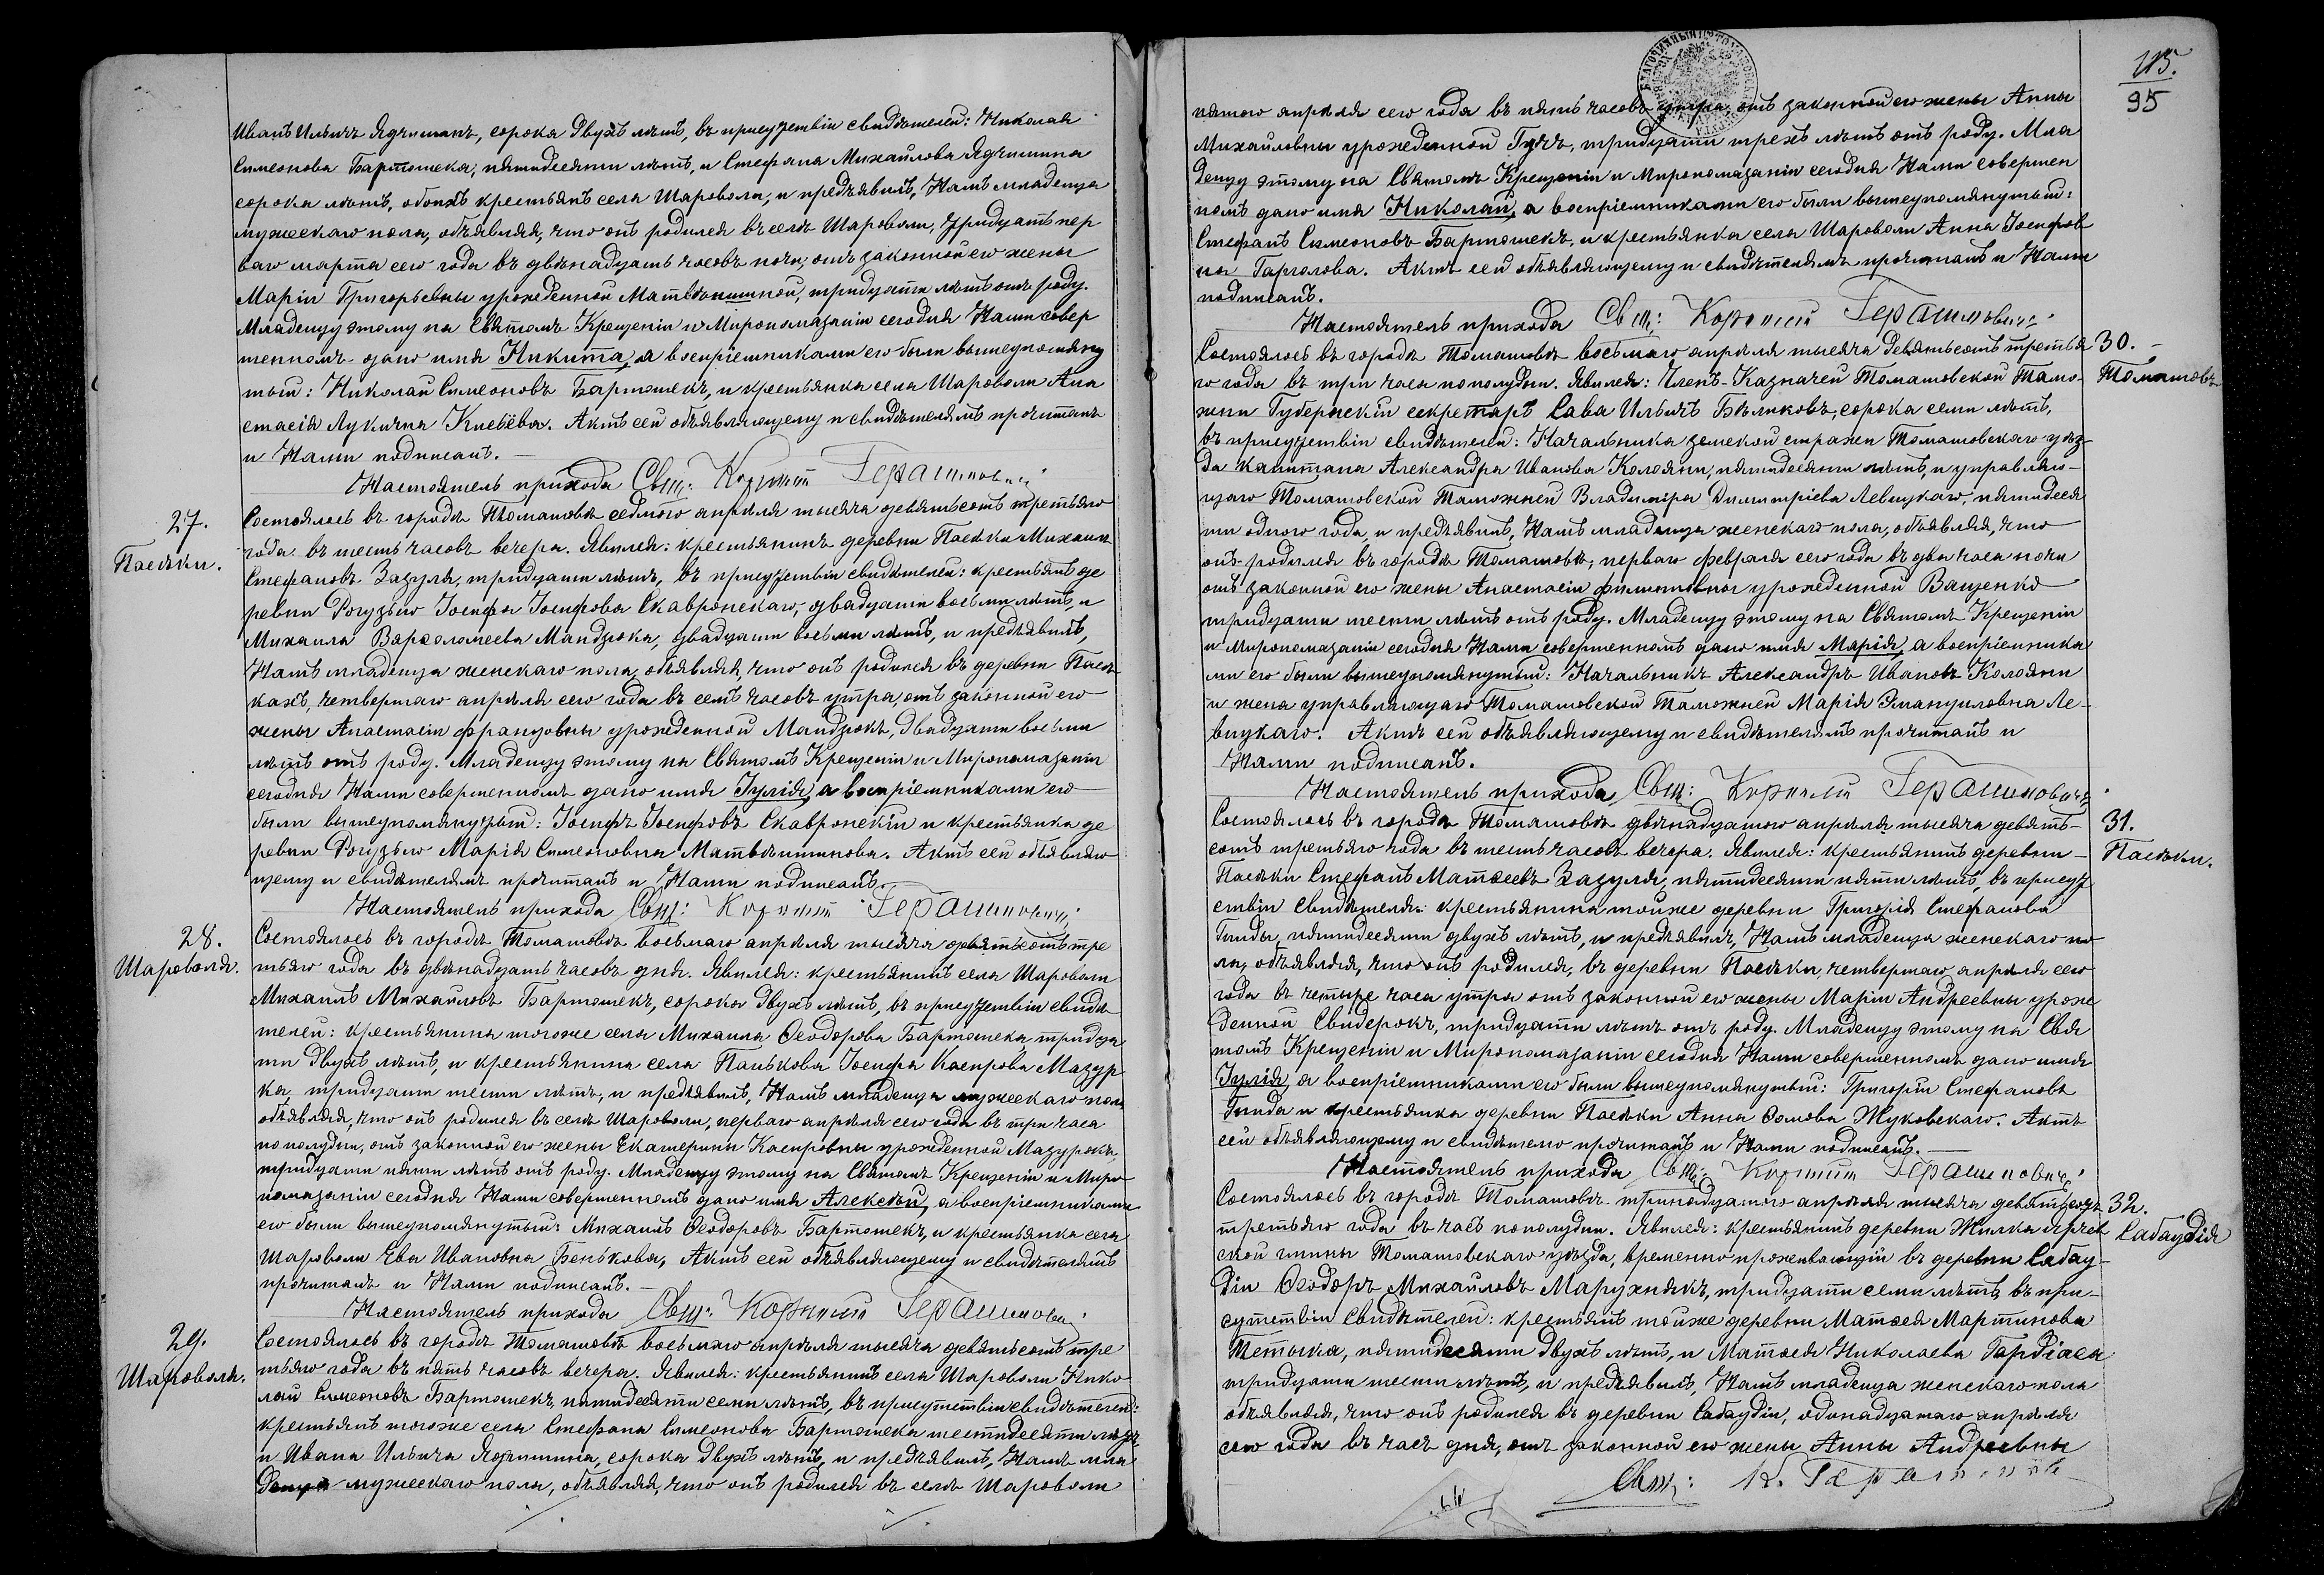 Иванъ Ильичъ Ядчишинъ, сорока двухъ лѣтъ, въ присутствіи свидѣтелей: Николая
Симеонова Бартошека, пятидесяти лѣтъ, и Стефана Михайлова Ядчишина
сорока лѣтъ, обоихъ крестьянъ села Шароволи, и предъявилъ, Намъ младенца
мужескаго пола, объявляя, что онъ родился въ селѣ Шароволи, тридцать пер
ваго марта сего года въ двѣнадцать часовъ ночи, отъ законной его жены
Маріи Григорьевны урожденной Матвѣишиной, тридцати лѣтъ отъ роду.
Младенцу этому на Святомъ Крещеніи и Миропомазаніи сегодня Нами совер
шенномъ дано имя Никита, а воспріемниками его были вышеупомяну
тый: Николай Симеоновъ Бартошекъ, и крестьянка села Шароволи Ана
стасія Лукична Кнебева. Актъ сей объявляющему и свидѣтелямъ прочитанъ
и Нами подписанъ.
Настоятель прихода Свщ: Корнилій Герашиновичъ
27.
Пасѣки.
Состоялось въ городѣ Томашовѣ седмого апрѣля тысяча девятьсотъ третьяго
года въ шесть часовъ вечера. Явился: крестьянинъ деревни Пасѣки Михаилъ
Стефановъ Зазуля, тридцати лѣтъ, въ присутствіи свидѣтелей: крестьянъ де
ревни Рогузьно Іосифа Іосифова Скавронскаго, двадцати восьми лѣтъ, и
Михаила Варѳоломеева Мандзюка, двадцати восьми лѣтъ, и предъявилъ,
Намъ младенца женскаго пола, объявляя, что онъ родился въ деревни Пасѣ
кахъ, четвертаго апрѣля сего года въ семь часовъ утра, отъ законной его
жены Анастасіи Францовны урожденной Мандзюкъ, двадцати восьми
лѣтъ отъ роду. Младенцу этому на Святомъ Крещеніи и Миропомазаніи
сегодня Нами совершенномъ дано имя Іулія, а воспріемниками его
были вышеупомянутый: Іосифъ Іосифовъ Скавронскій и крестьянка де
ревни Рогузьно Марія Симеоновна Матвѣишинова. Актъ сей объявляю
щему и свидѣтелямъ прочитанъ и Нами подписанъ.
Настоятель прихода Свщ: Корнилій Герашиновичъ
28.
Шароволя.
Состоялось въ городѣ Томашовѣ восьмаго апрѣля тысяча девятьсотъ тре
тьяго года въ двѣнадцать часовъ дня. Явился: крестьянинъ села Шароволи
Михаилъ Михайловъ Бартошекъ, сорока двухъ лѣтъ, въ присутствіи свидѣ
телей: крестьянина тогоже села Михаила Ѳеодорова Бартошека, тридца
ти двухъ лѣтъ, и крестьянина села Панькова Іосифа Каспрова Мазур
ка, тридцати шести лѣтъ, и предъявилъ, Намъ младенца мужескаго пола
объявляя, что онъ родился въ селѣ Шароволи, перваго апрѣля сего года въ три часа
пополудни, отъ законной его жены Екатерины Каспровны урожденной Мазурокъ,
тридцати пяти лѣтъ отъ роду. Младенцу этому на Святомъ Крещеніи и Миро
помазаніи сегодня Нами совершенномъ дано имя Алексѣй, а воспріемниками
его были вышеупомянутый: Михаилъ Ѳеодоровъ Бартошекъ, и крестьянка села
Шароволи Ева Ивановна Бенькова, Актъ сей объявляющему и свидѣтелямъ
прочитанъ и Нами подписанъ.
Настоятель прихода Свщ: Корнилій Герашинович
29.
Шароволя.
Состоялось въ городѣ Томашовѣ восьмаго апрѣля тысяча девятьсотъ тре
тьяго года въ пять часовъ вечера. Явился: крестьянинъ села Шароволи Нико
лай Симеоновъ Бартошекъ, пятидесяти семи лѣтъ, въ присутствіи свидѣтелей:
крестьянъ тогоже села Стефана Симеонова Бартошека шестидесяти лѣтъ,
и Ивана Ильича Ядчишина, сорока двухъ лѣтъ, и предъявилъ, Намъ мла
денца мужескаго пола, объявляя, что онъ родился въ селѣ Шароволи
115.
95
пятого апрѣля сего года въ пять часовъ утра отъ законной его жены Анны
Михайловны урожденной Гучъ, тридцати трехъ лѣтъ отъ роду. Мла
денцу этому на Святомъ Крещеніи и Миропомазаніи сегодня Нами совершен
номъ дано имя Николай, а воспріемниками его были вышеупомянутый:
Стефанъ Симеоновъ Бартошекъ, и крестьянка села Шароволи Анна Іосифов
на Гарголова. Актъ сей объявляющему и свидѣтелямъ прочитанъ и Нами
подписанъ.
Настоятель прихода Свщ: Корнилій Герашиновичъ
30.
Томашовъ
Состоялось въ городѣ Томашовѣ восьмаго апрѣля тысяча девятьсотъ третья
го года въ три часа пополудни. Явился: Членъ-Казначей Томашовской Тамо-
жни Губернскій секретарь Сава Ильичъ Бѣликовъ, сорока семи лѣтъ,
въ присутствіи свидѣтелей: Начальника земской стражи Томашовскаго уѣз-
да капитана Александра Иванова Колояни, пятидесяти лѣтъ, и управляю-
щаго Томашовской Таможней Владиміра Димитріева Левицкаго, пятидеся
ти одного года, и предъявилъ, Намъ младенца женскаго пола, объявляя, что
онъ родился въ городѣ Томашовѣ, перваго февраля сего года въ два часа ночи
отъ законной его жены Анастасіи Филиповны урожденной Ващенко
тридцати шести лѣтъ отъ роду. Младенцу этому на Святомъ Крещеніи
и Миропомазаніи сегодня Нами совершенномъ дано имя Марія, а воспріемника
ми его были вышеупомянутый: Начальникъ Александръ Ивановъ Колояни
и жена управляющаго Томашовской Таможней Марія Эмануиловна Ле-
вицкаго. Актъ сей объявляющему и свидѣтелямъ прочитанъ и
Нами подписанъ.
Настоятель прихода Свщ: Корнилій Герашиновичъ
31.
Пасѣки.
Состоялось въ городѣ Томашовѣ двѣнадцатого апрѣля тысяча девять-
сотъ третьяго года въ шесть часовъ вечера. Явился: крестьянинъ деревни
Пасѣки Стефанъ Матѳеевъ Зазуля, пятидесяти пяти лѣтъ, въ присут
ствіи свидѣтеля: крестьянина тойже деревни Григорія Стефанова
Гинды, пятидесяти двухъ лѣтъ, и предъявилъ, Намъ младенца женскаго по
ла, объявляя, что онъ родился, въ деревни Пасѣки, четвертаго апрѣля сего
года въ четыре часа утра отъ законной его жены Маріи Андреевны урож
денной Свидерокъ, тридцати лѣтъ отъ роду. Младенцу этому на Свя
томъ Крещеніи и Миропомазаніи сегодня Нами совершенномъ дано имя
Іулія, а воспріемниками его были вышеупомянутый: Григорій Стефановъ
Гинда и крестьянка деревни Пасѣки Анна Ѳомова Жуковскаго. Актъ
сей объявляющему и свидѣтелю прочитанъ и Нами подписанъ.
Настоятель прихода Свщ: Корнилій Герашиновичъ
32.
Сабаудія
Состоялось въ городѣ Томашовѣ тринадцатого апрѣля тысяча девятьсотъ
третьяго года въ часъ пополудни. Явился: крестьянинъ деревни Жилка Ярчев
ской гмины Томашовскаго уѣзда, временно проживающій въ деревни Сабау-
діи Ѳеодоръ Михайловъ Марухнякъ, тридцати семи лѣтъ, въ при-
сутствіи свидѣтелей: крестьянъ тойже деревни Матѳея Мартинова
Тетыка, пятидесяти двухъ лѣтъ, и Матѳея Николаева Гардіаса
тридцати шести лѣтъ, и предъявилъ, Намъ младенца женскаго пола
объявляя, что онъ родился въ деревни Сабаудіи, одинадцатаго апрѣля
сего года въ часъ дня, отъ законной его жены Анны Андреевны
Свщ: К. Герашинович